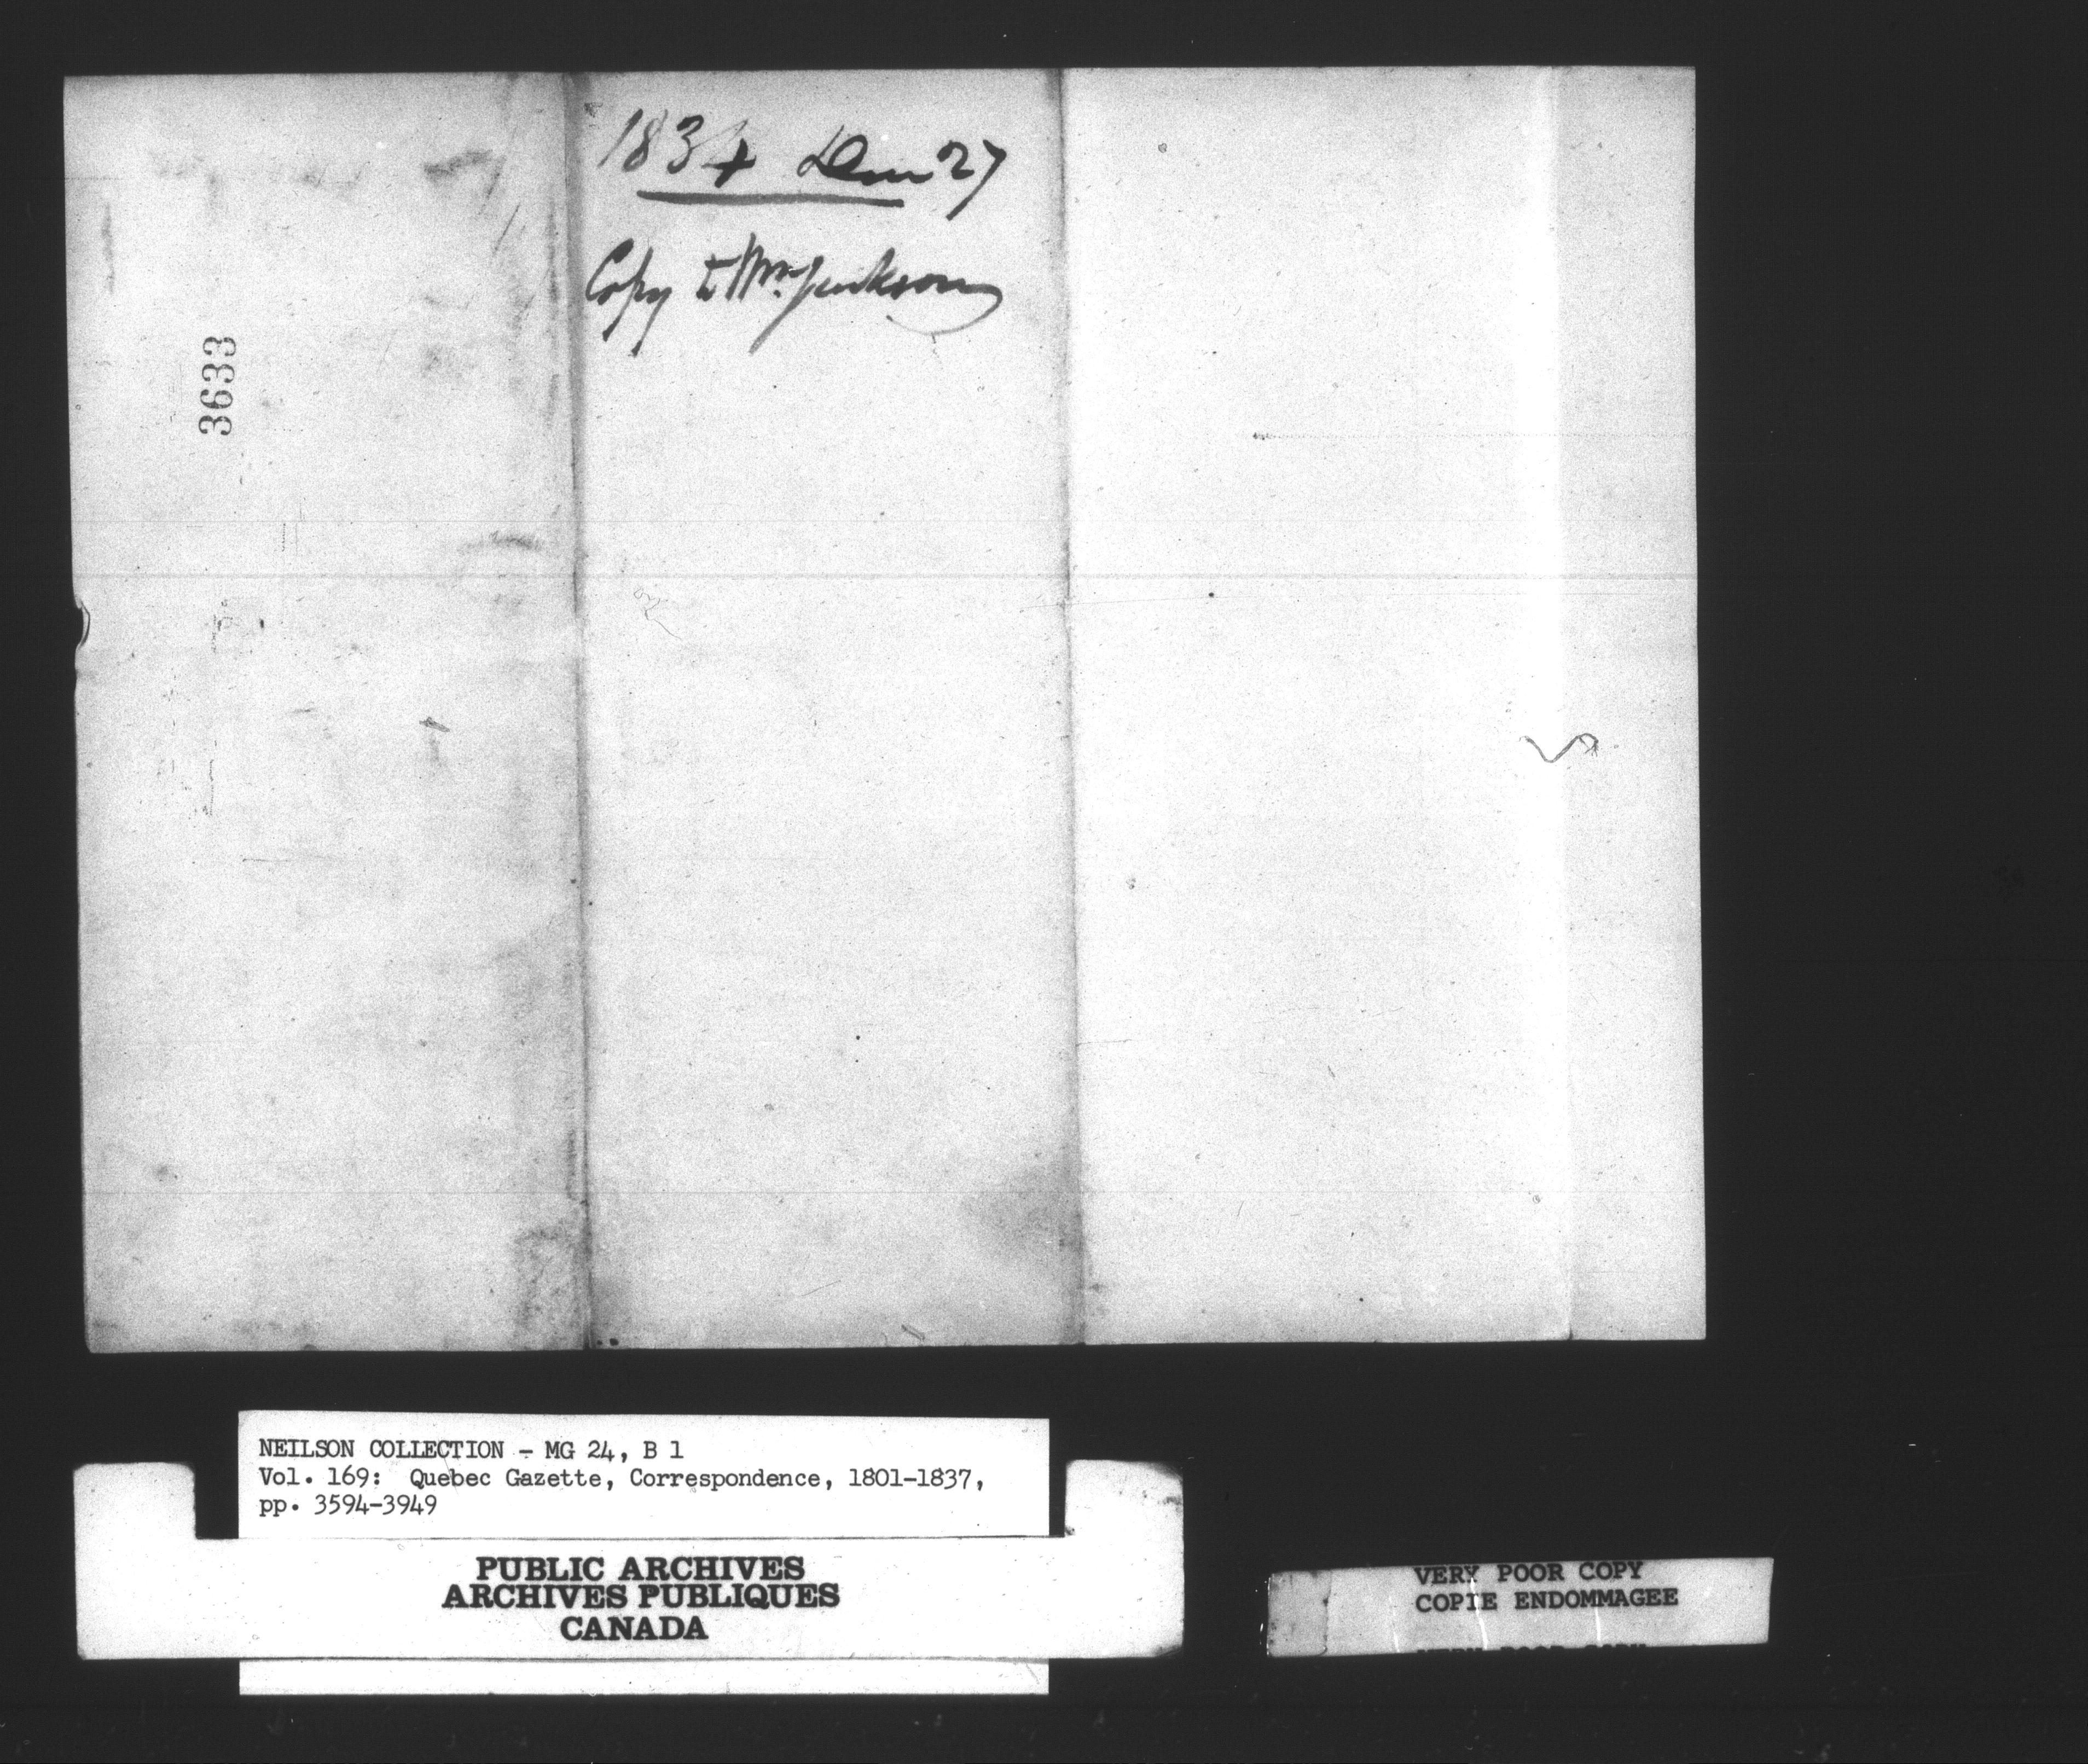 1834 Dec 27
Copy to Mr. Jackson
3633
NEILSON COLLECTION - MG 24, B 1
Vol. 169: Quebec Gazette, Correspondence, 1801-1837,
pp. 3594-3949
PUBLIC ARCHIVES
ARCHIVES PUBLIQUES
CANADA
VERY POOR COPY
COPIE ENDOMMAGEE
VERY POOR COPY